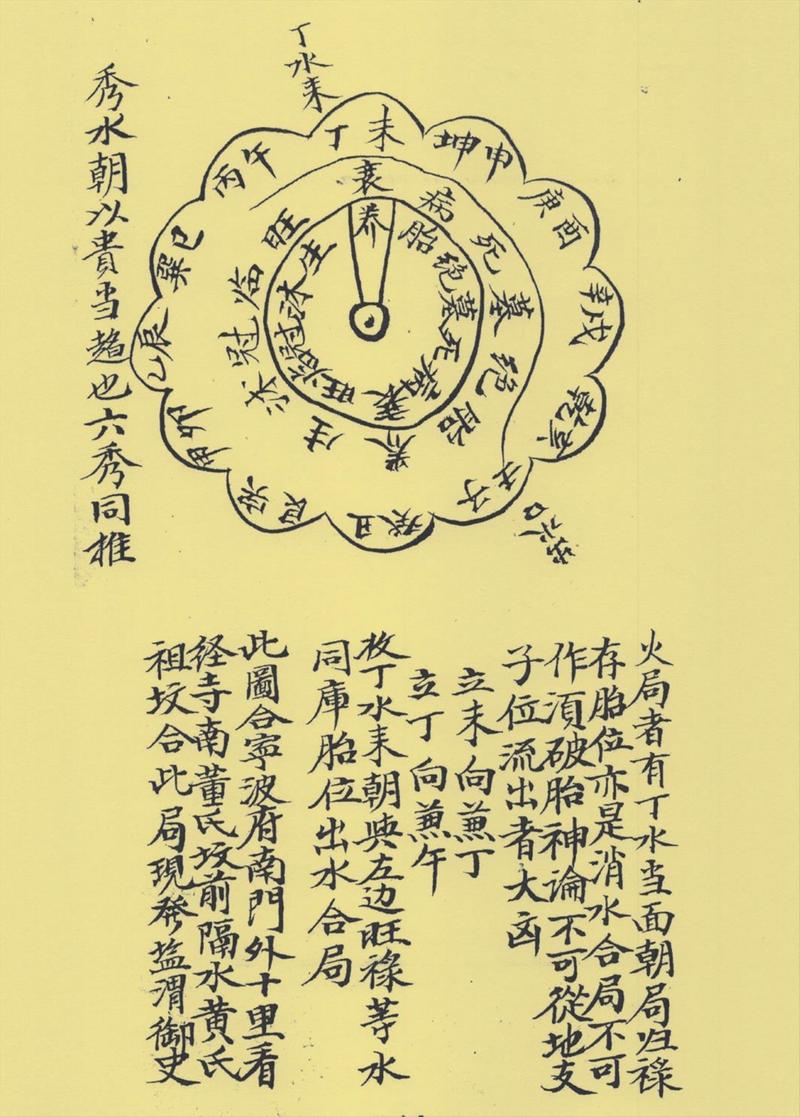 丁水来
秀水朝以貴当趋也六秀同推
丁未
坤申
庚酉
辛戌
乾亥
壬子
癸丑
艮寅
甲卯
乙辰
巽巳
丙午
衰
病
死
墓
绝
胎
养
生
沐
冠
临
旺
养
胎
绝
墓
死
病
衰
旺
临
冠
沐
生
火局者有丁水当面朝局归禄
存胎位亦是消水合局不可
作須破胎神論不可從地支
子位流出者大凶
立未向兼丁
立丁向兼午
故丁水来朝與左边旺禄等水
同庫胎位出水合局
此圖合寧波府南門外十里看
経寺南董氏坟前隔水黄氏
祖坟合此局現發塩渭御史